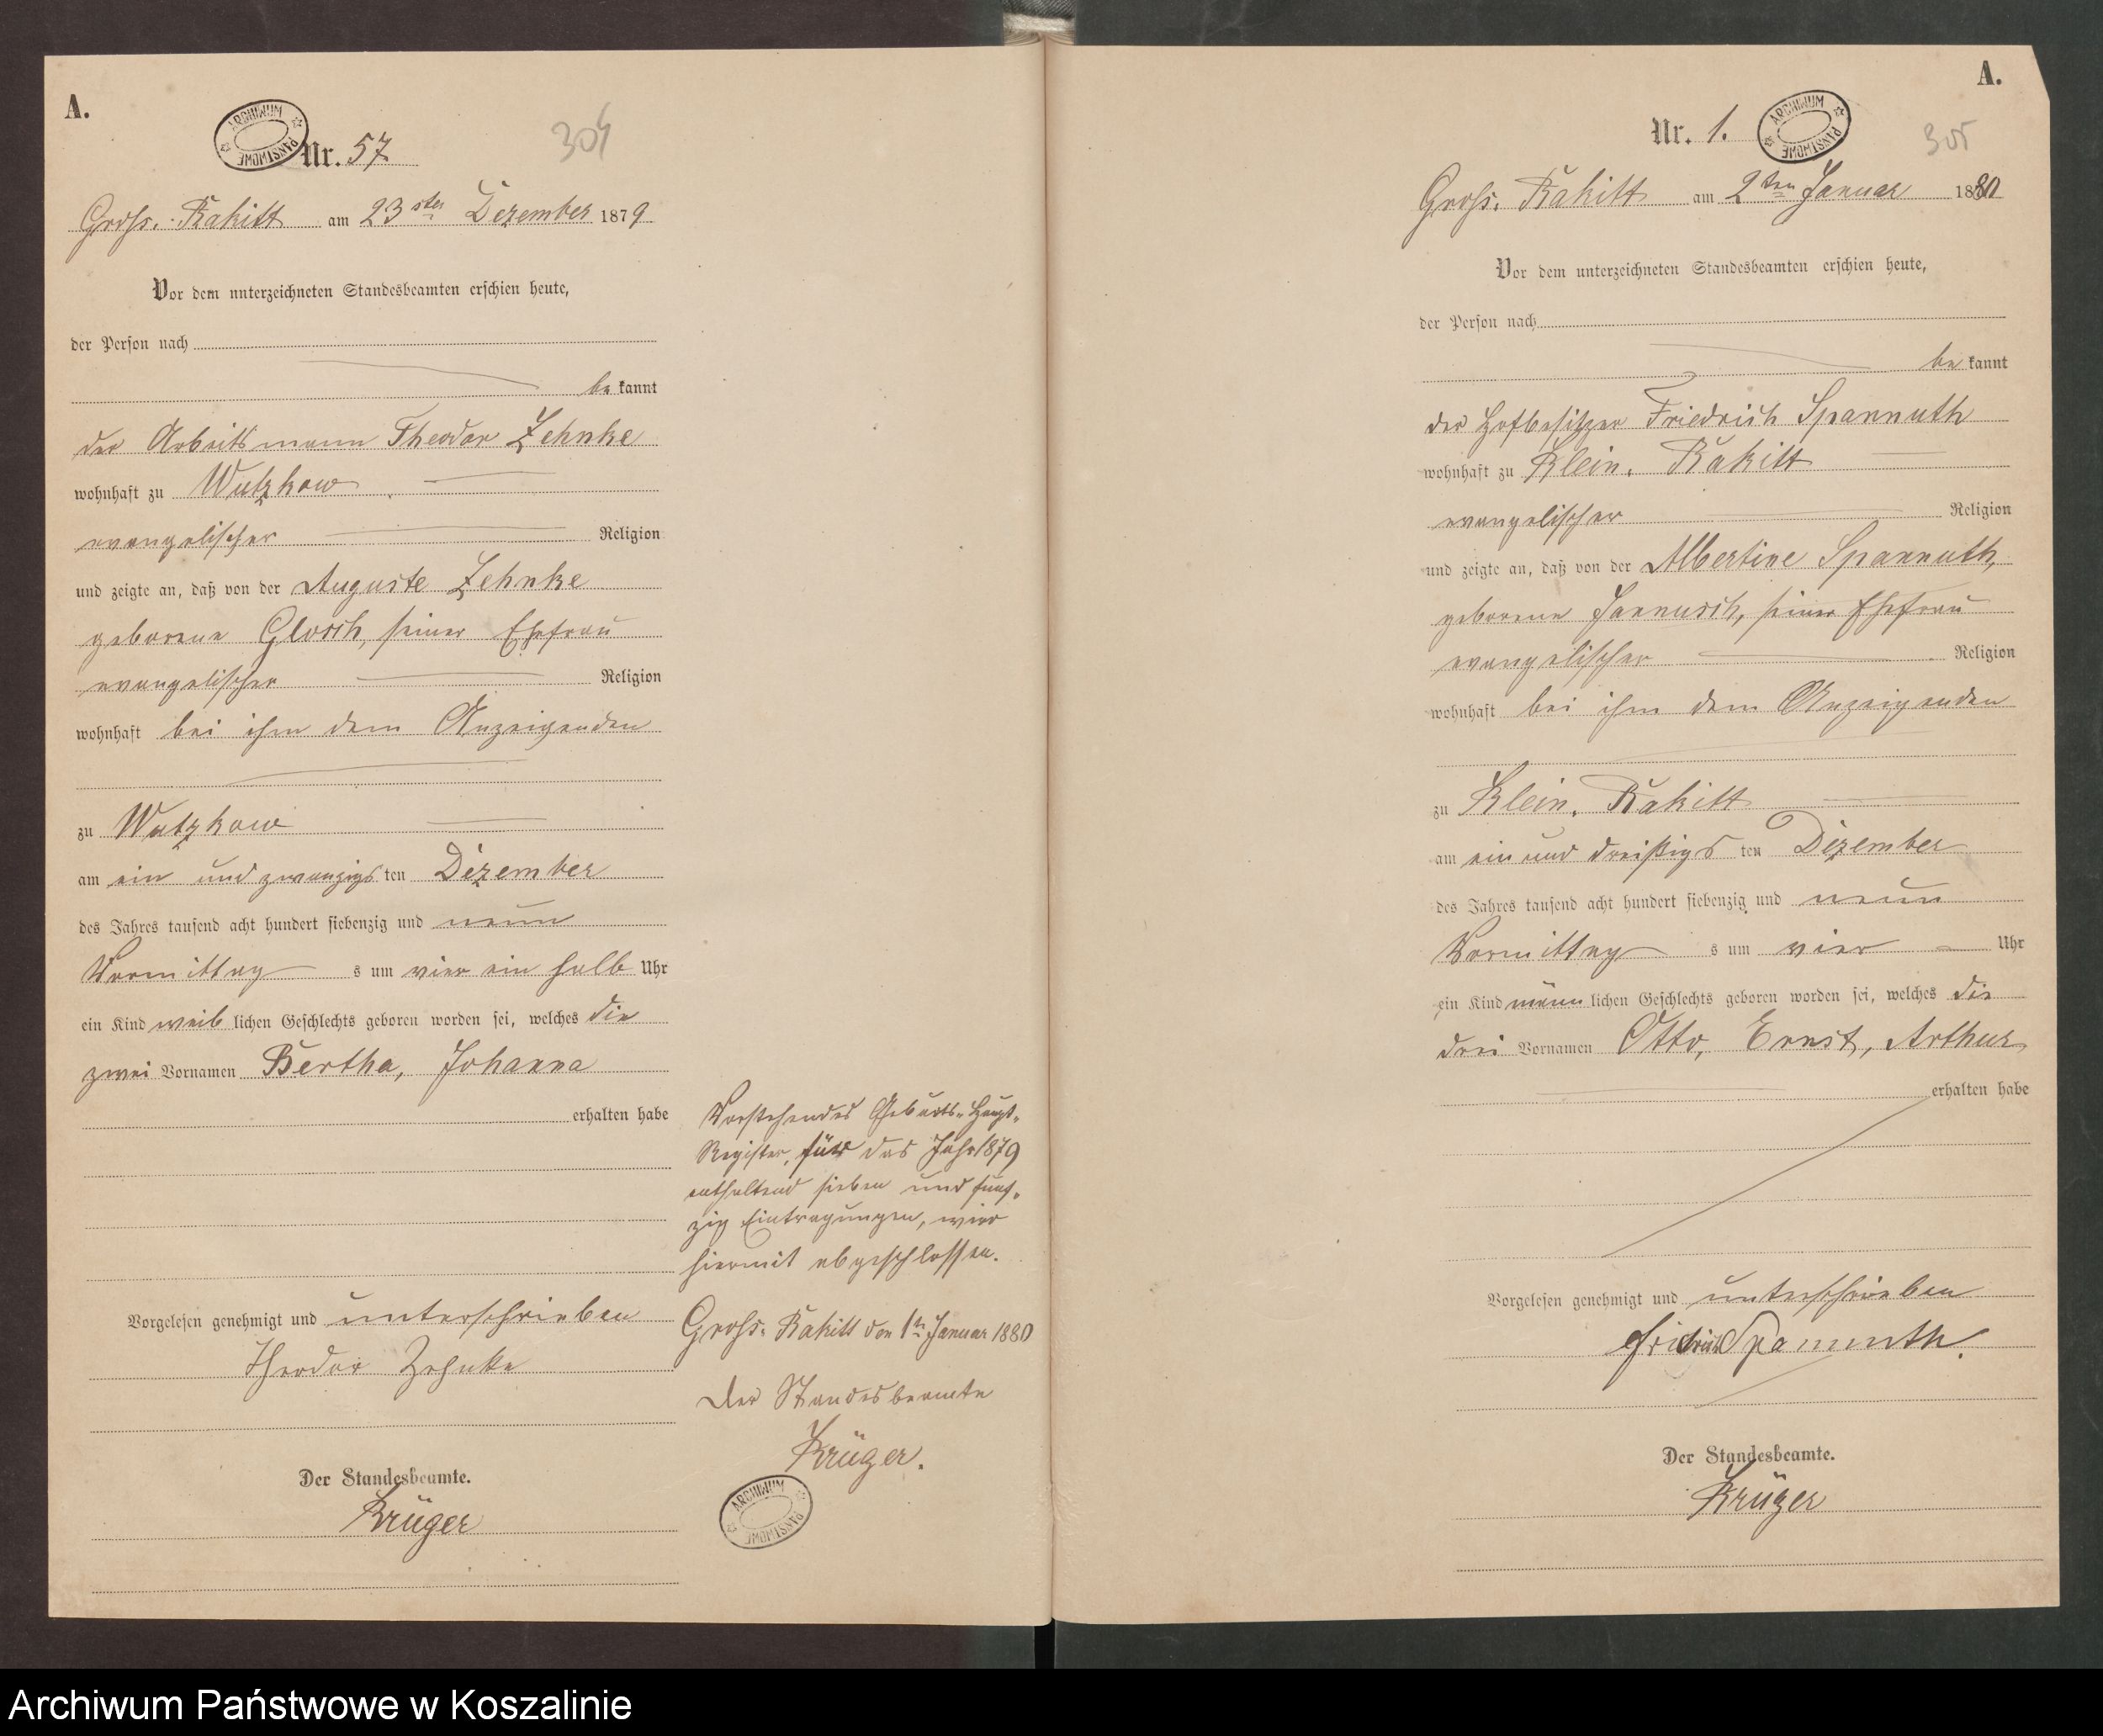 A.
ARCHIWUM PAŃSTWOWE
Nr. 57
304
Gross. Rakitt am 23ster Dezember 1879
Vor dem unterzeichneten Standesbeamten erschien heute,
der Person nach
be kannt
der Arbeitsmann Theodor Zehnke
wohnhaft zu Wutzkow
evangelischer Religion
und zeigte an, daß von der Auguste Zehnke
geborene Glosch, seiner Ehefrau
evangelischer Religion
wohnhaft bei ihm dem Anzeigenden
zu Wutzkow
am ein und zwanzigs ten Dezember
des Jahres tausend acht hundert siebenzig und neun
Vormittag s um vier ein halb Uhr
ein Kind weib lichen Geschlechts geboren worden sei, welches die
zwei Vornamen Bertha, Johanna
erhalten habe
Vorgelesen genehmigt und unterschrieben
Theodor Zehnke
Der Standesbeamte.
Krüger
Vorstehendes Geburts-Haupt-
Register, für das Jahr 1879
enthaltend sieben und fünf-
zig Eintragungen, wird
hiermit abgeschlossen.
Gross. Rakitt den 1ten Januar 1880
Der Standesbeamte
Krüger.
ARCHIWUM PAŃSTWOWE
A.
Nr. 1.
ARCHIWUM PAŃSTWOWE
305
Gross. Rakitt am 2ten Januar 1880
Vor dem unterzeichneten Standesbeamten erschien heute,
der Person nach
be kannt
der Hofbesitzer Friedrich Spannuth
wohnhaft zu Klein. Rakitt
evangelischer Religion
und zeigte an, daß von der Albertine Spannuth,
geborene Jannusch, seiner Ehefrau
evangelischer Religion
wohnhaft bei ihm dem Anzeigenden
zu Klein. Rakitt
am ein und dreißigs ten Dezember
des Jahres tausend acht hundert siebenzig und neun
Vormittag s um vier Uhr
ein Kind männ lichen Geschlechts geboren worden sei, welches die
drei Vornamen Otto, Ernst, Arthur
erhalten habe
Vorgelesen genehmigt und unterschrieben
Fridrich Spannuth.
Der Standesbeamte.
Krüger
Archiwum Państwowe w Koszalinie